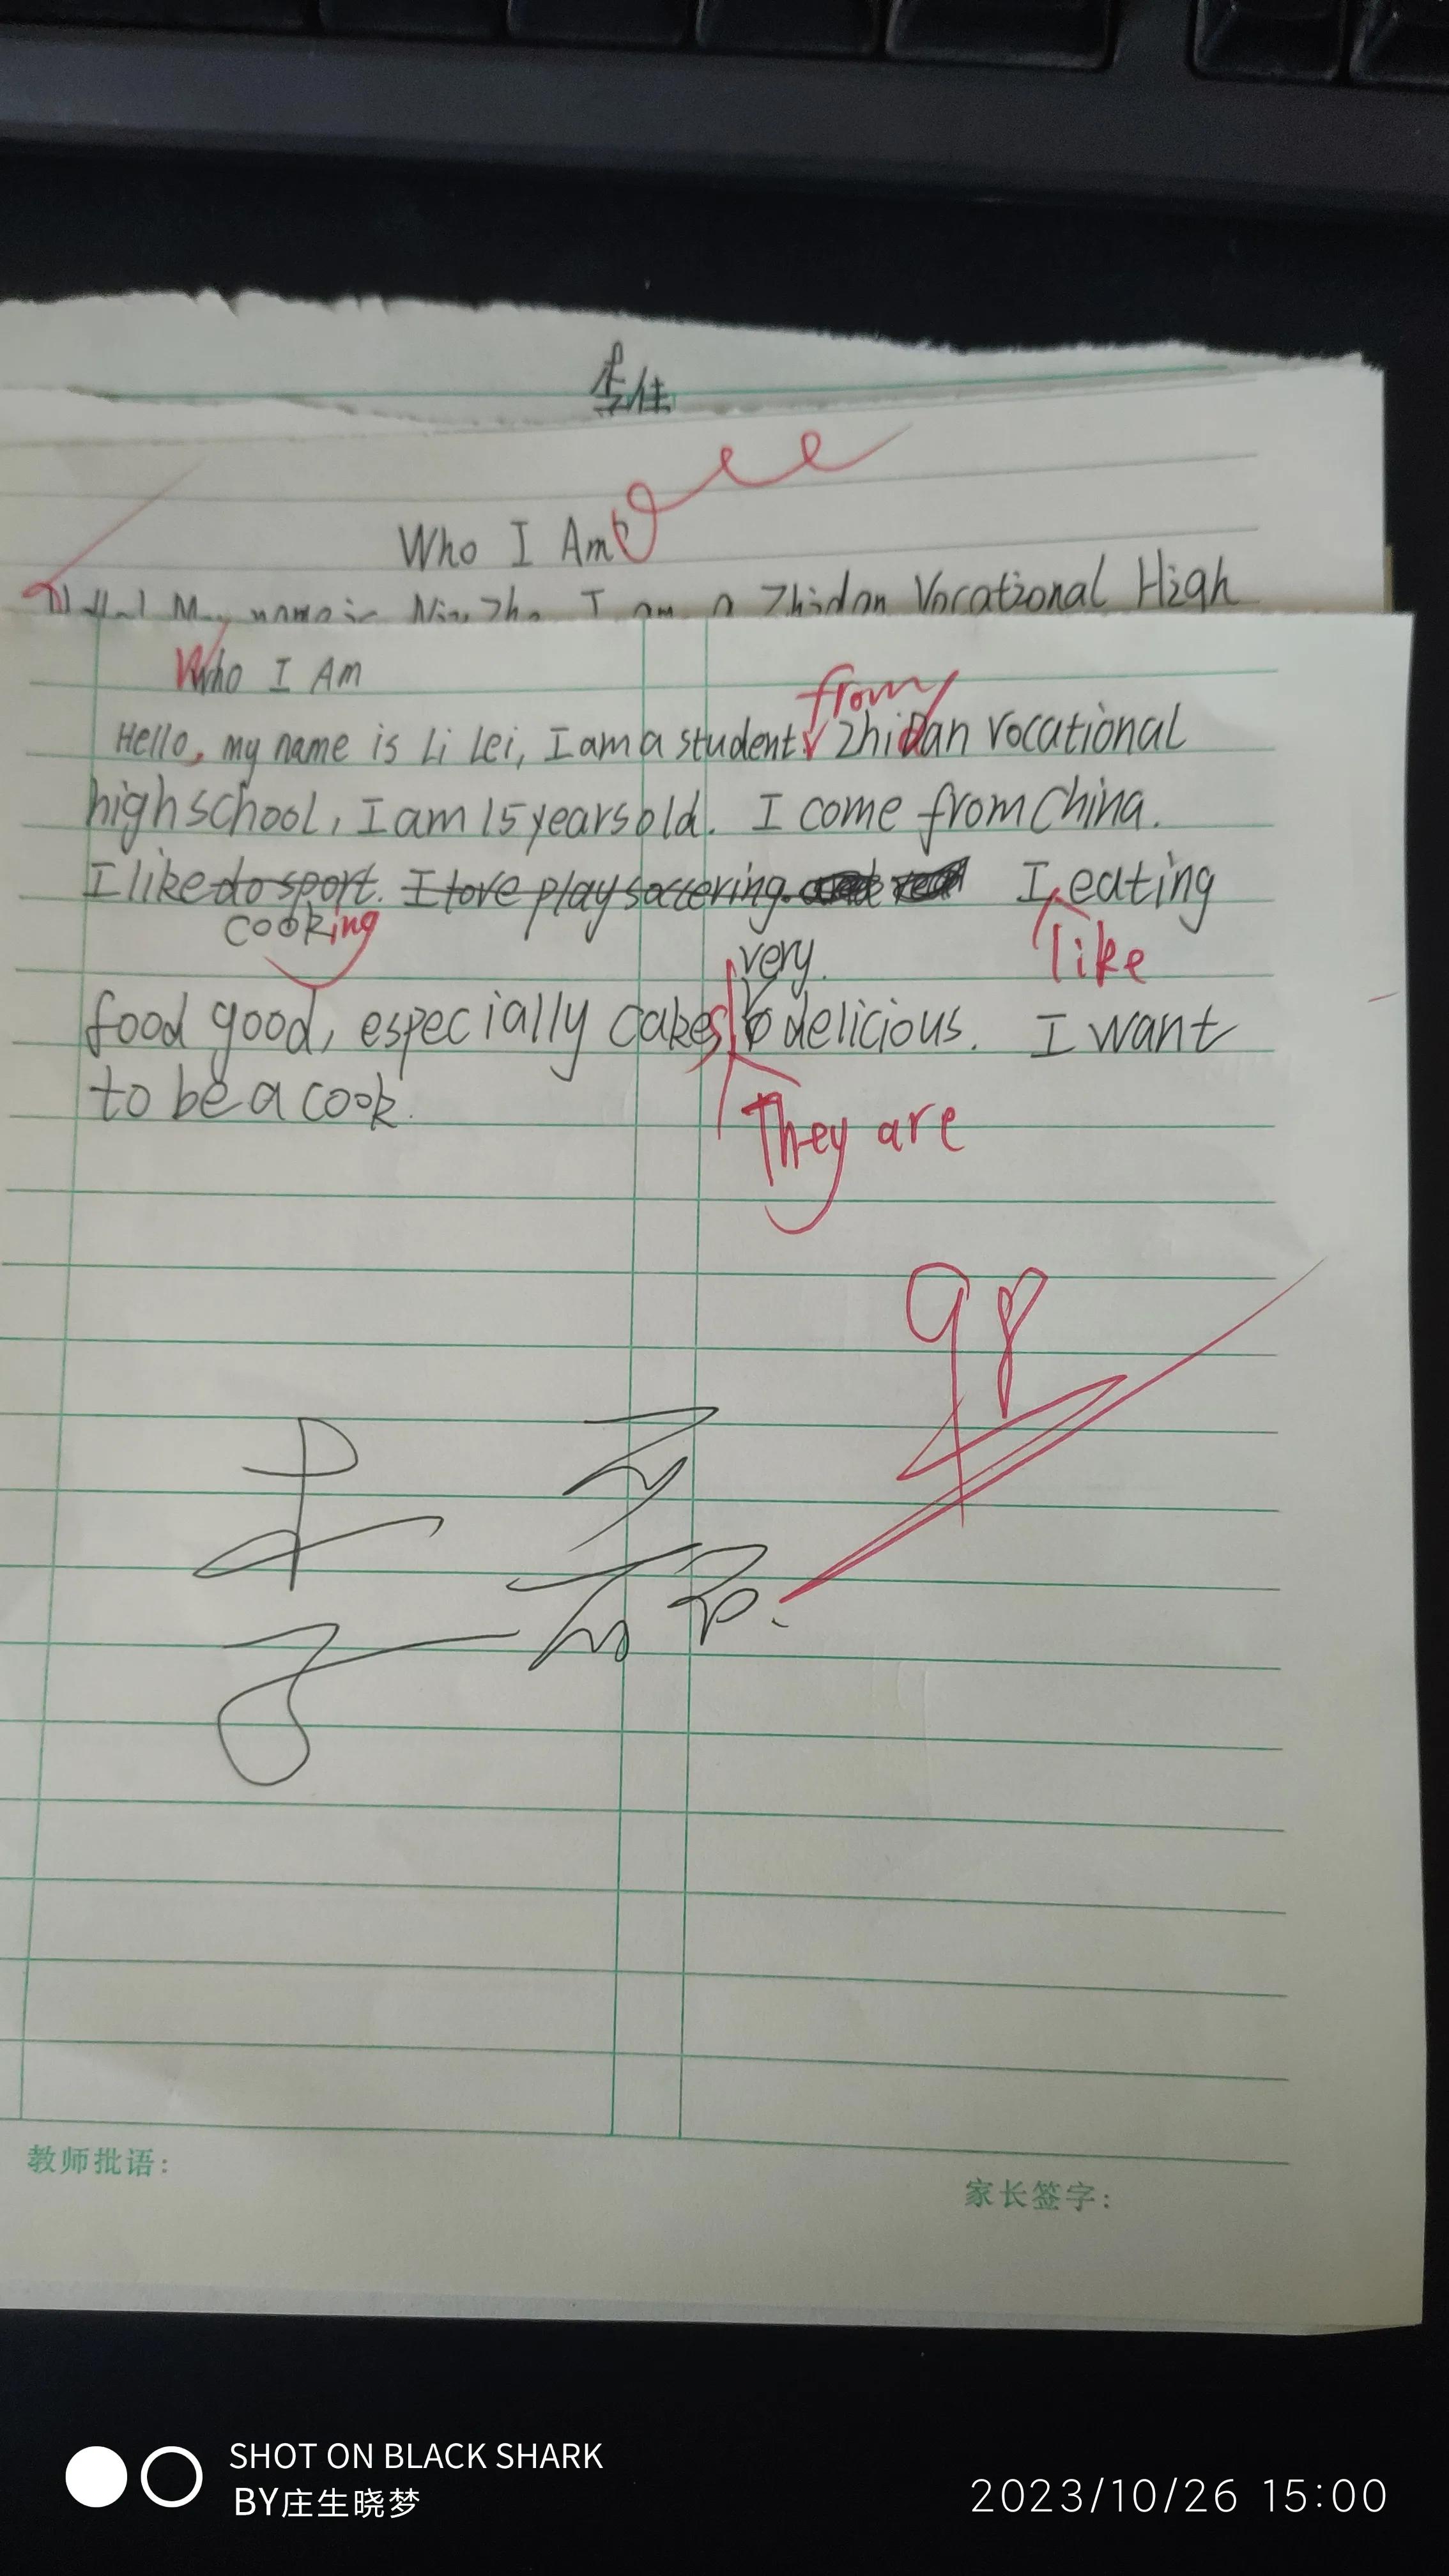 李佳
Who I Am
My name is I am a Zhidan Vocational High
Who I Am
from
Hello, my name is Li Lei, I am a student. Zhidan vocational
high school, I am 15 years old. I come from China.
I like do sport. I love play soccering. I eating
cooking
like
very.
food good, especially cakes delicious. I want
to be a cook.
They are
98
教师批语:
家长签字:
SHOT ON BLACK SHARK
BY庄生晓梦
2023/10/26 15:00